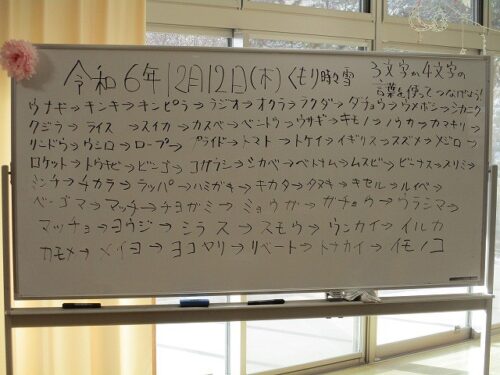 令和6年12月12日(木)くもり時々雪
3文字か4文字の
言葉を使ってつなげよう!
ウナギ→キンキ→キンピラ→ラジオ→オクラ→ラクダ→ダチョウ→ウメボシ→シカニク
クジラ→ライス→スイカ→カスベ→ベントウ→ウサギ→キモノ→ノウカ→カマキリ→
リンドウ→ウシロ→ロープ→プライド→トマト→トケイ→イギリス→スズメ→メジロ→
ロケット→トウキビ→ビンゴ→コガラシ→シカベ→ベトナム→ムスビ→ビーナス→スリミ→
ミンチ→チカラ→ラッパ→ハミガキ→キカタ→タヌキ→キセル→ルイベ→
ベーゴマ→マッチ→チヨガミ→ミョウガ→ガチョウ→ウラシマ→
マッチョ→ヨウジ→シラス→スモウ→ウンカイ→イルカ
カモメ→メイヨ→ヨコヤリ→リベート→トナカイ→イモノコ